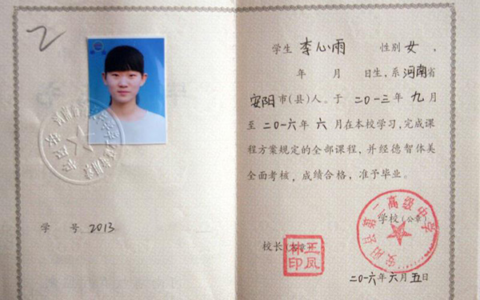 2
学 号 2013
学生 李心雨 性别 女,
年 月 日生, 系 河南 省
安阳 市(县)人。于 二〇一三 年 九 月
至 二〇一六 年 六 月在本校学习, 完成课
程方案规定的全部课程, 并经德智体美
全面考核, 成绩合格, 准予毕业。
学校(公章)
安阳县第二高级中学
校长
王凤
印
二〇一六年六月五日